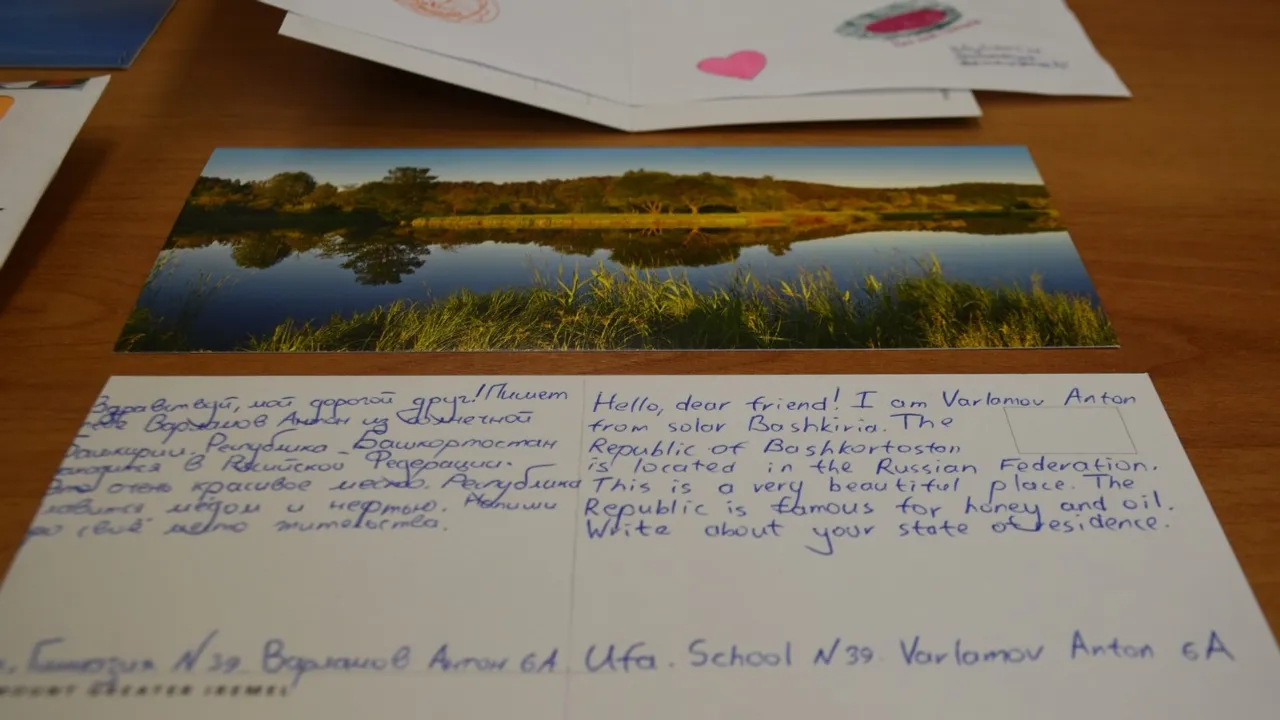 Здравствуй, мой дорогой друг! Пишет
тебе Варламов Антон из солнечной
Башкирии. Республика Башкортостан
находится в Российской Федерации.
Это очень красивое место. Республика
славится мёдом и нефтью. Напиши
про своё место жительства.
Гимназия N39 Варламов Антон 6А
MOUNT GREATER IREMEL
Hello, dear friend! I am Varlamov Anton
from solar Bashkiria. The
Republic of Bashkortostan
is located in the Russian Federation.
This is a very beautiful place. The
Republic is famous for honey and oil.
Write about your state of residence.
Ufa. School N39. Varlamov Anton 6A